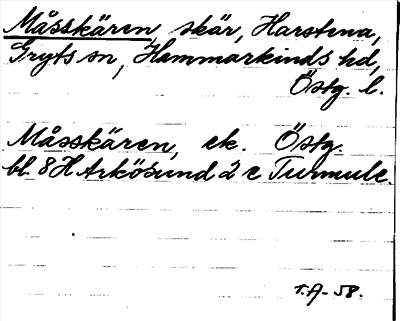 Måsskären, skär, Harstena,
Gryts sn, Hammarkinds hd,
Östg. l.
Måsskären, ek. Östg.
bl. 8H Arkösund 2 c Turmule.
T.A-58.